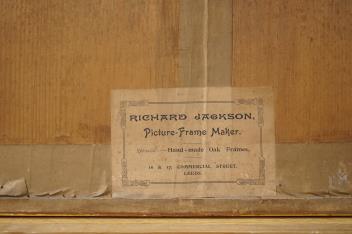 RICHARD JACKSON,
Picture-Frame Maker.
Hand-made Oak Frames,
16 & 17, COMMERCIAL STREET,
LEEDS.